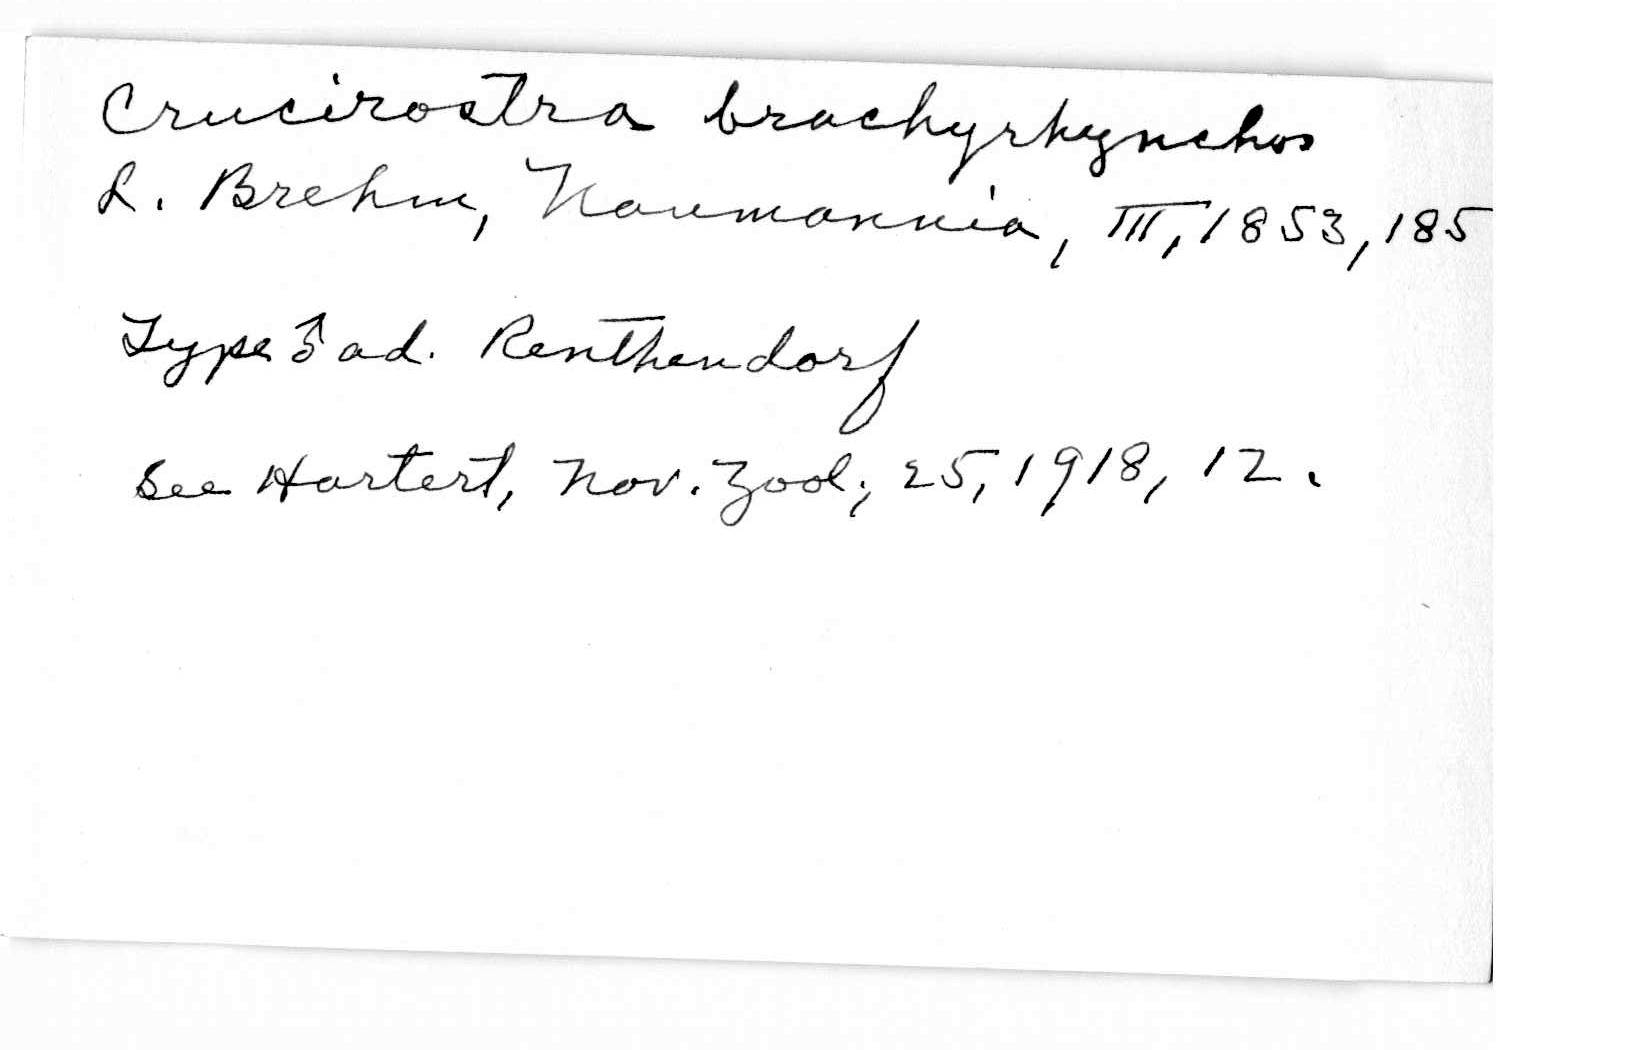 Crucirostra brachyrhynchos
L. Brehm, Naumannia, III, 1853, 185
Type ♂ ad. Renthendorf
See Hartert, Nov. Zool., 25, 1918, 12.